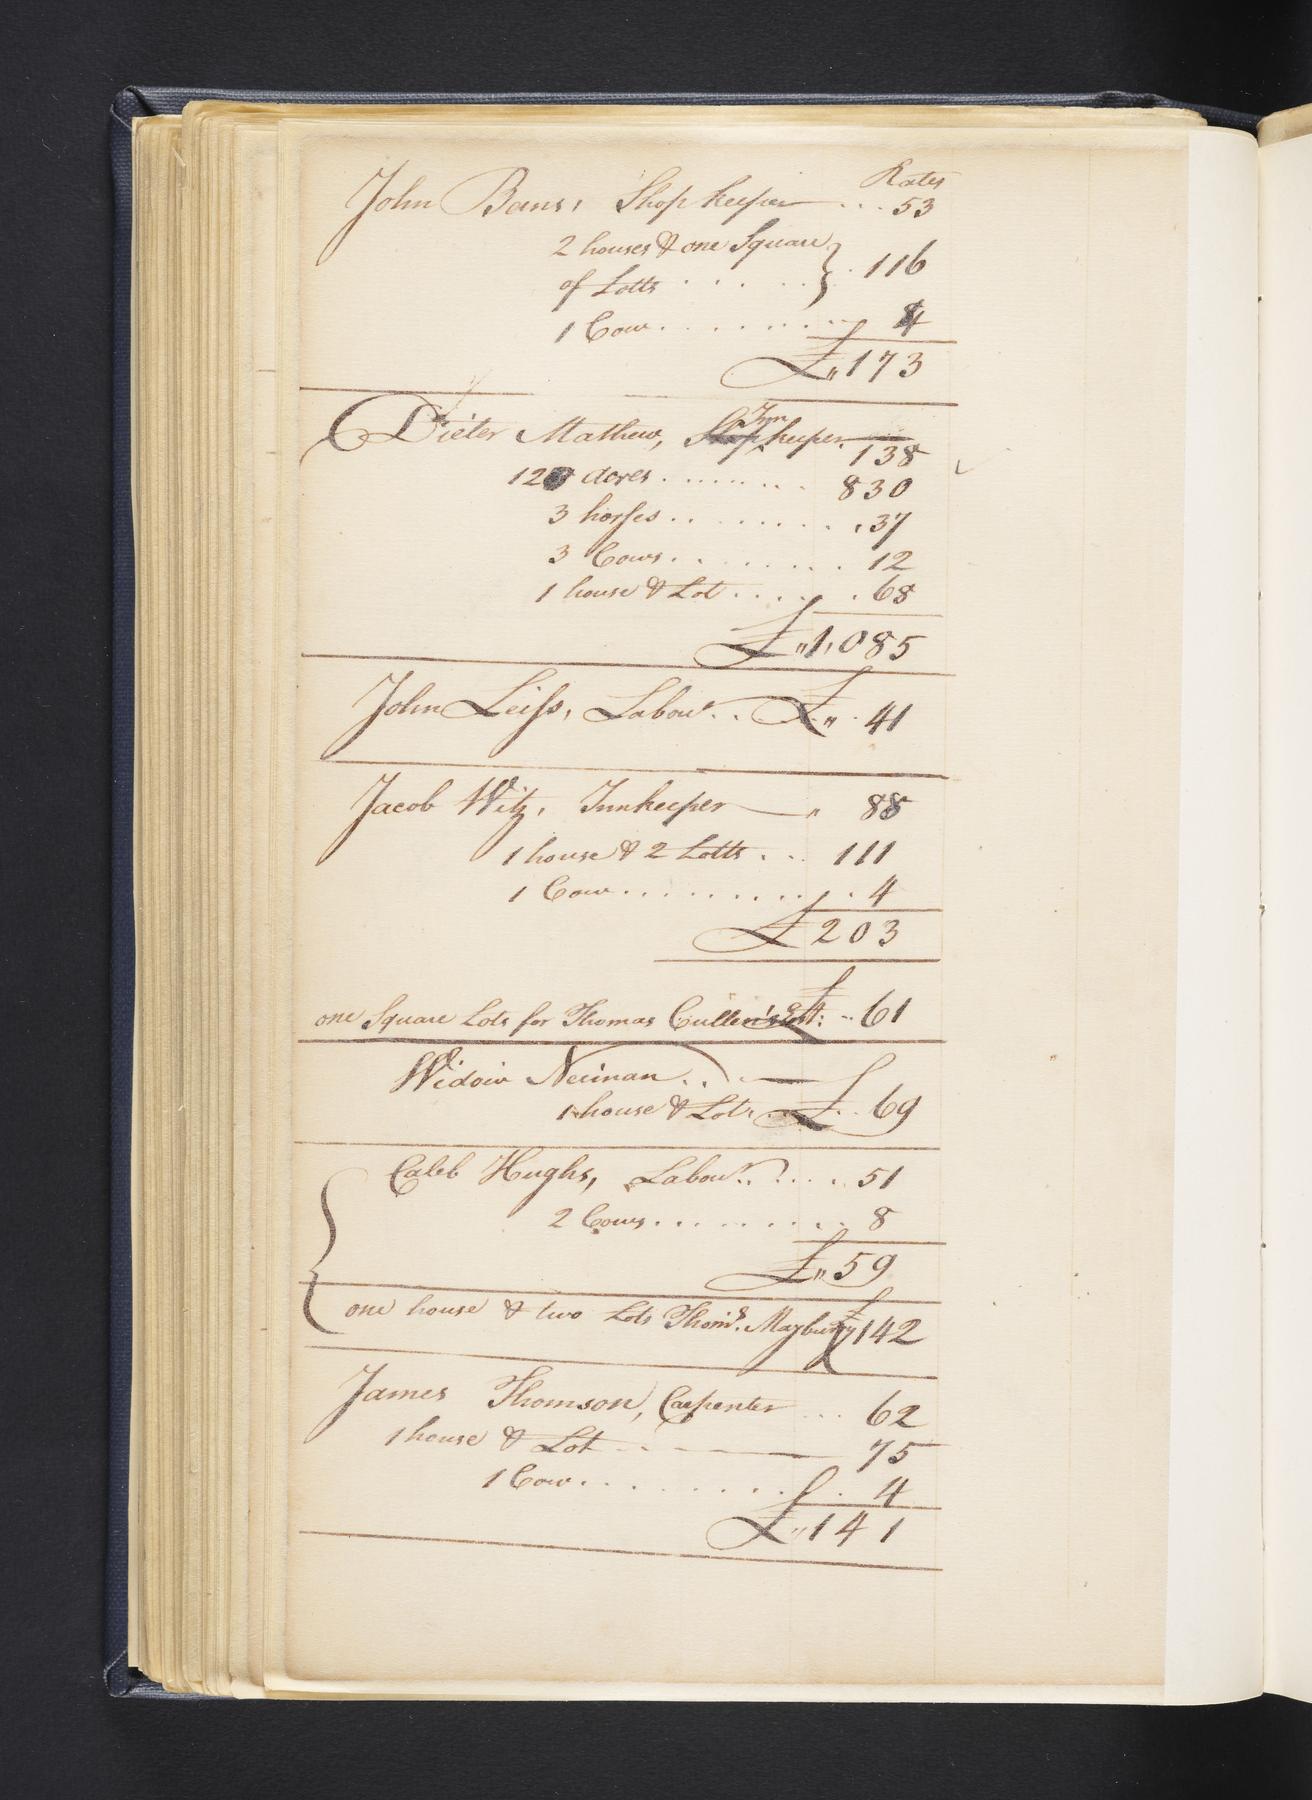 Rates
John Bans, Shop keeper ... 53
2 houses & one Square
of Lotts . . . . . } . 116
1 Cow . . . . . . . . 4
£,, 173
Dieter Mathew, Inn keeper 138
12 acres . . . . . . . . 830
3 horses . . . . . . . . . 37
3 Cows . . . . . . . . . 12
1 house & Lot . . . . . 68
£,, 1,085
John Leiss, Labour . . £,, . 41
Jacob Witz, Innkeeper — ,, 88
1 house & 2 Lotts . . . 111
1 Cow . . . . . . . . . . . 4
£ 203
one Square Lots for Thomas Cullen's Est: £ .. 61
Widow Neuman . .
1 house & Lot . . £ . . 69
Caleb Hughs, Labour . . . . . 51
2 Cows . . . . . . . . . 8
£,, 59
one house & two Lots Thoms. Maybury £ 142
James Thomson, Carpenter ... 62
1 house & Lot - - — 75
1 Cow . . . . . . . . . . 4
£,, 141